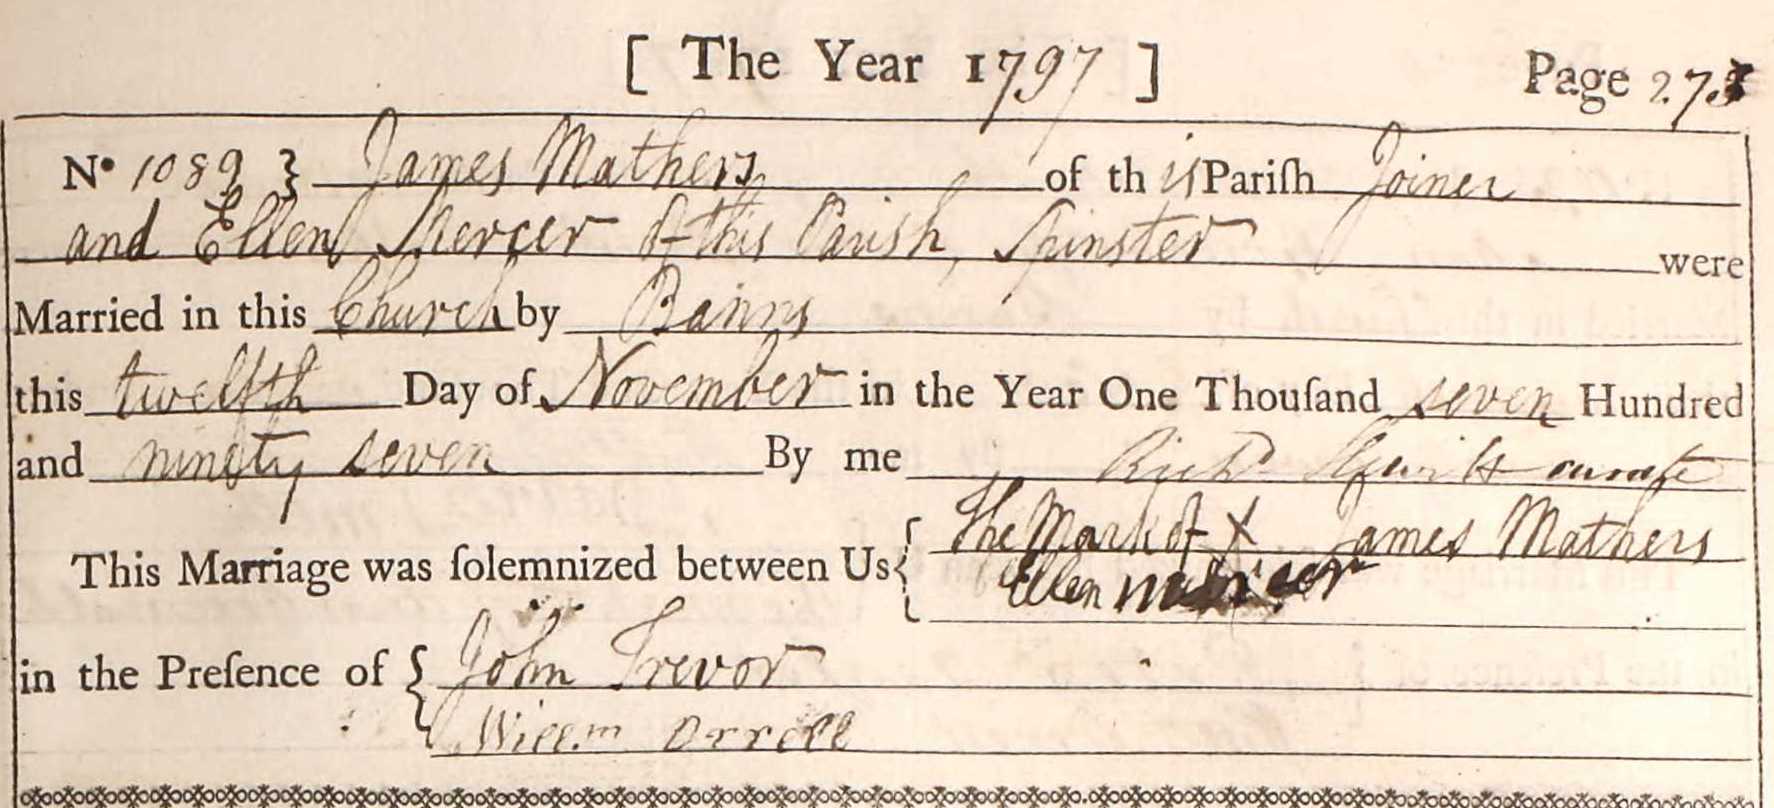 [ The Year 1797 ] Page 273
No 1089 } James Mathers of this Pariſh Joiner
and Ellen Mercer of this Parish, Spinster were
Married in this Church by Banns
this twelfth Day of November in the Year One Thouſand seven Hundred
and ninety seven By me Richd curate
This Marriage was ſolemnized between Us { The Mark of X James Mathers
Ellen mercer
in the Preſence of { John Trevor
Willm Orrell